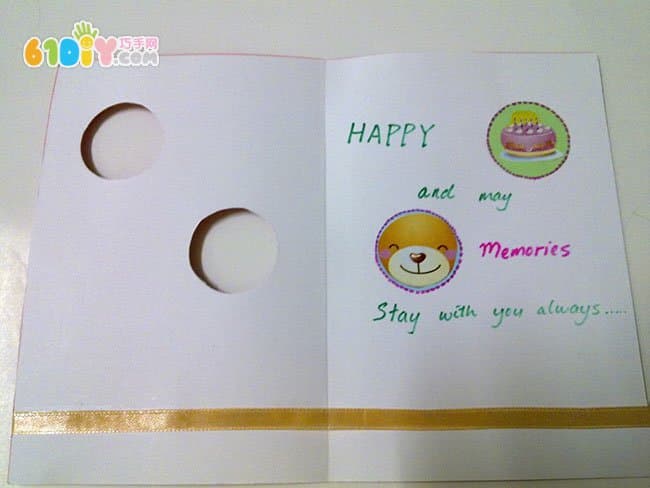 61DIY巧手网
.com
HAPPY
and may
Memories
Stay with you always.....